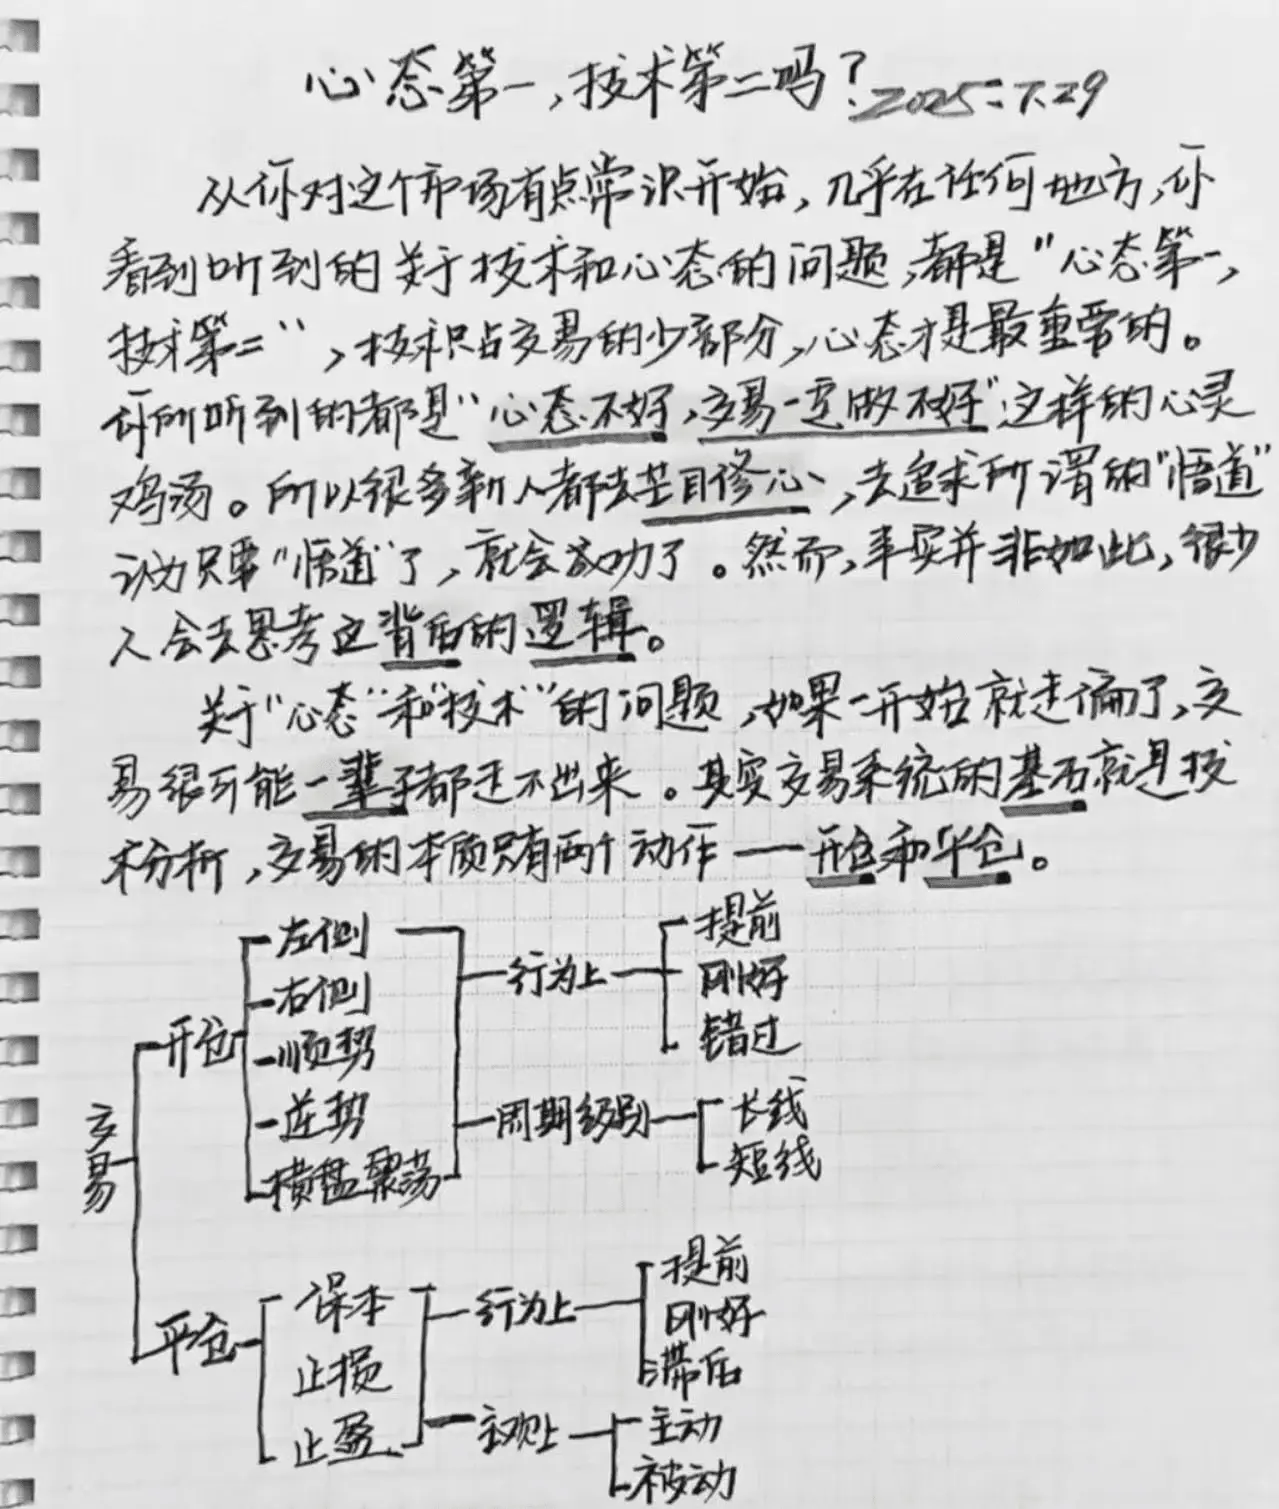 心态第一,技术第二吗? 2025.7.29
从你对这个市场有点常识开始,几乎在任何地方,你
看到听到的关于技术和心态的问题,都是"心态第一,
技术第二",技术只占交易的少部分,心态才是最重要的。
你所听到的都是"心态不好,交易一定做不好"这样的心灵
鸡汤。所以很多新人都去芒目修心,去追求所谓的"悟道"
认为只要"悟道"了,就会成功了。然而,事实并非如此,很少
人会去思考这背后的逻辑。
关于"心态"和"技术"的问题,如果一开始就走偏了,交
易很可能一辈子都走不出来。其实交易系统的基石就是技
术分析,交易的本质只有两个动作——开仓和平仓。
交易
开仓
左侧
右侧
顺势
逆势
横盘震荡
行为上
提前
刚好
错过
周期级别
长线
短线
平仓
保本
止损
止盈
行为上
提前
刚好
滞后
主观上
主动
被动